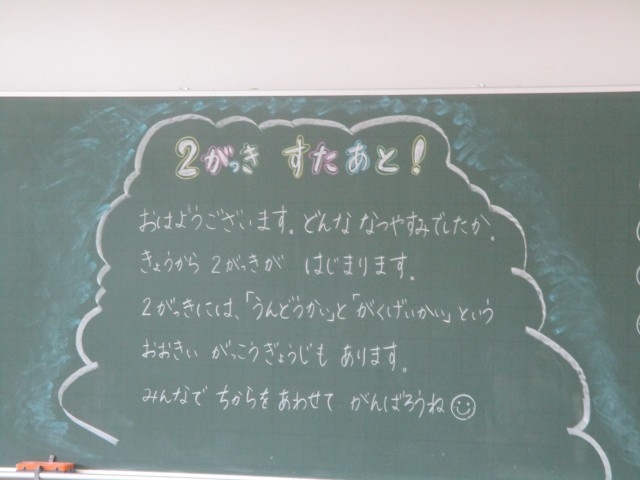 2がっき すたあと!
おはようございます。どんな なつやすみでしたか。
きょうから 2がっきが はじまります。
2がっきには、「うんどうかい」と「がくげいかい」という
おおきい がっこうぎょうじも あります。
みんなで ちからを あわせて がんばろうね